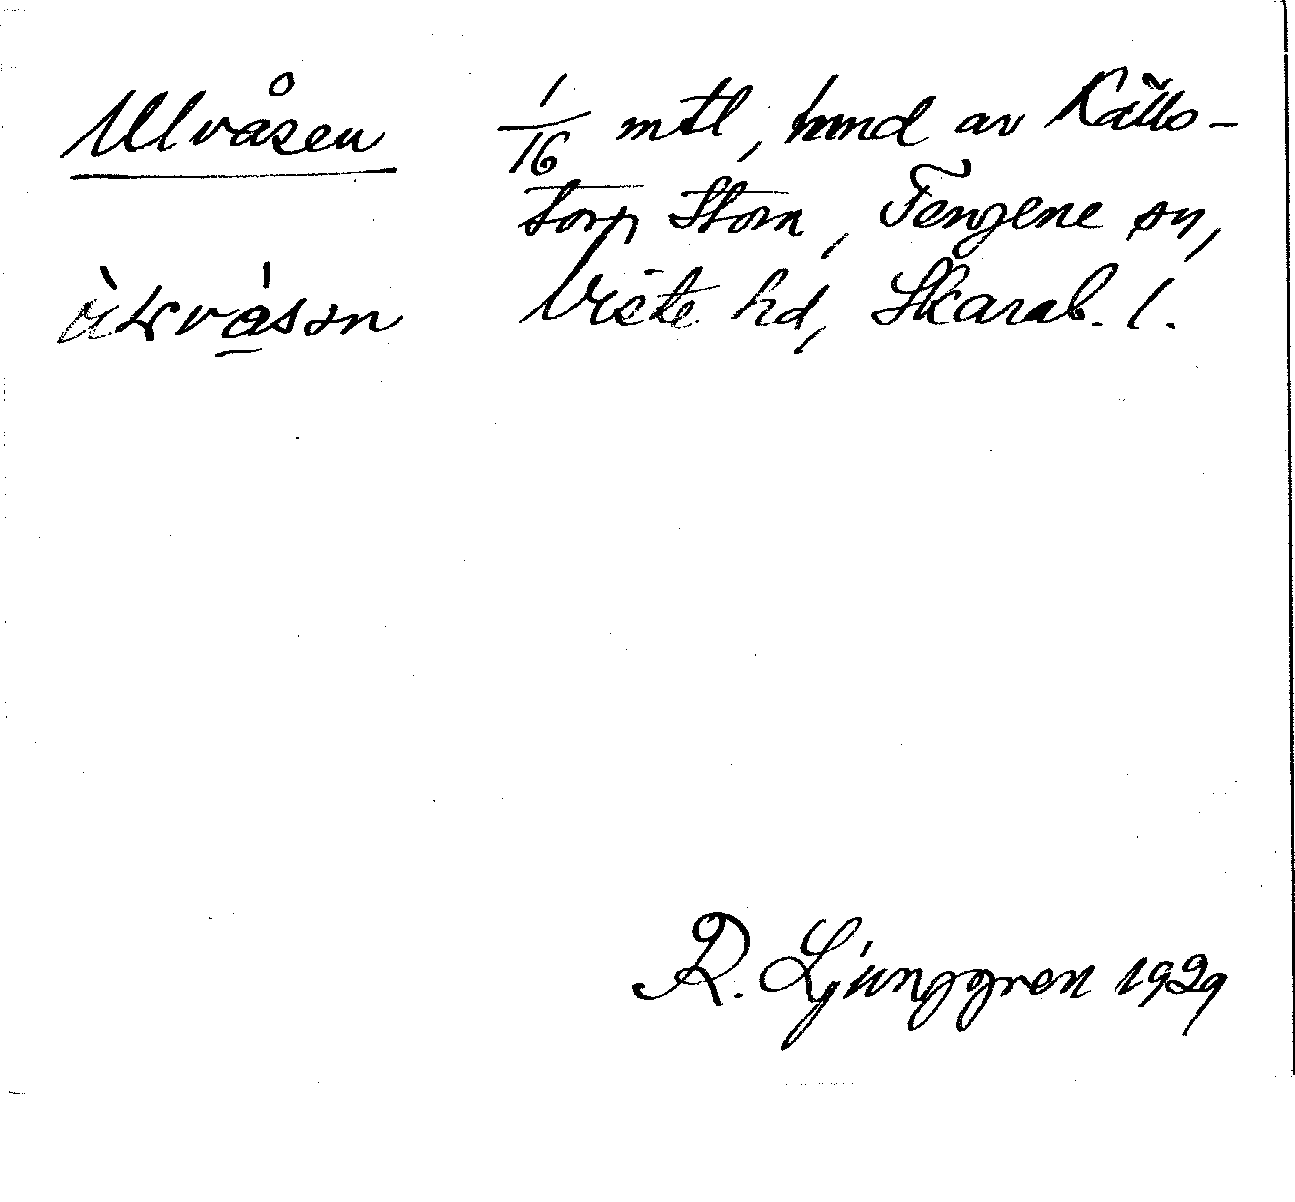 Ulvåsen
1/16 mtl, hmd av Källs-
torp Stora, Tengene sn,
Viste hd, Skarab. l.
R. Ljunggren 1929